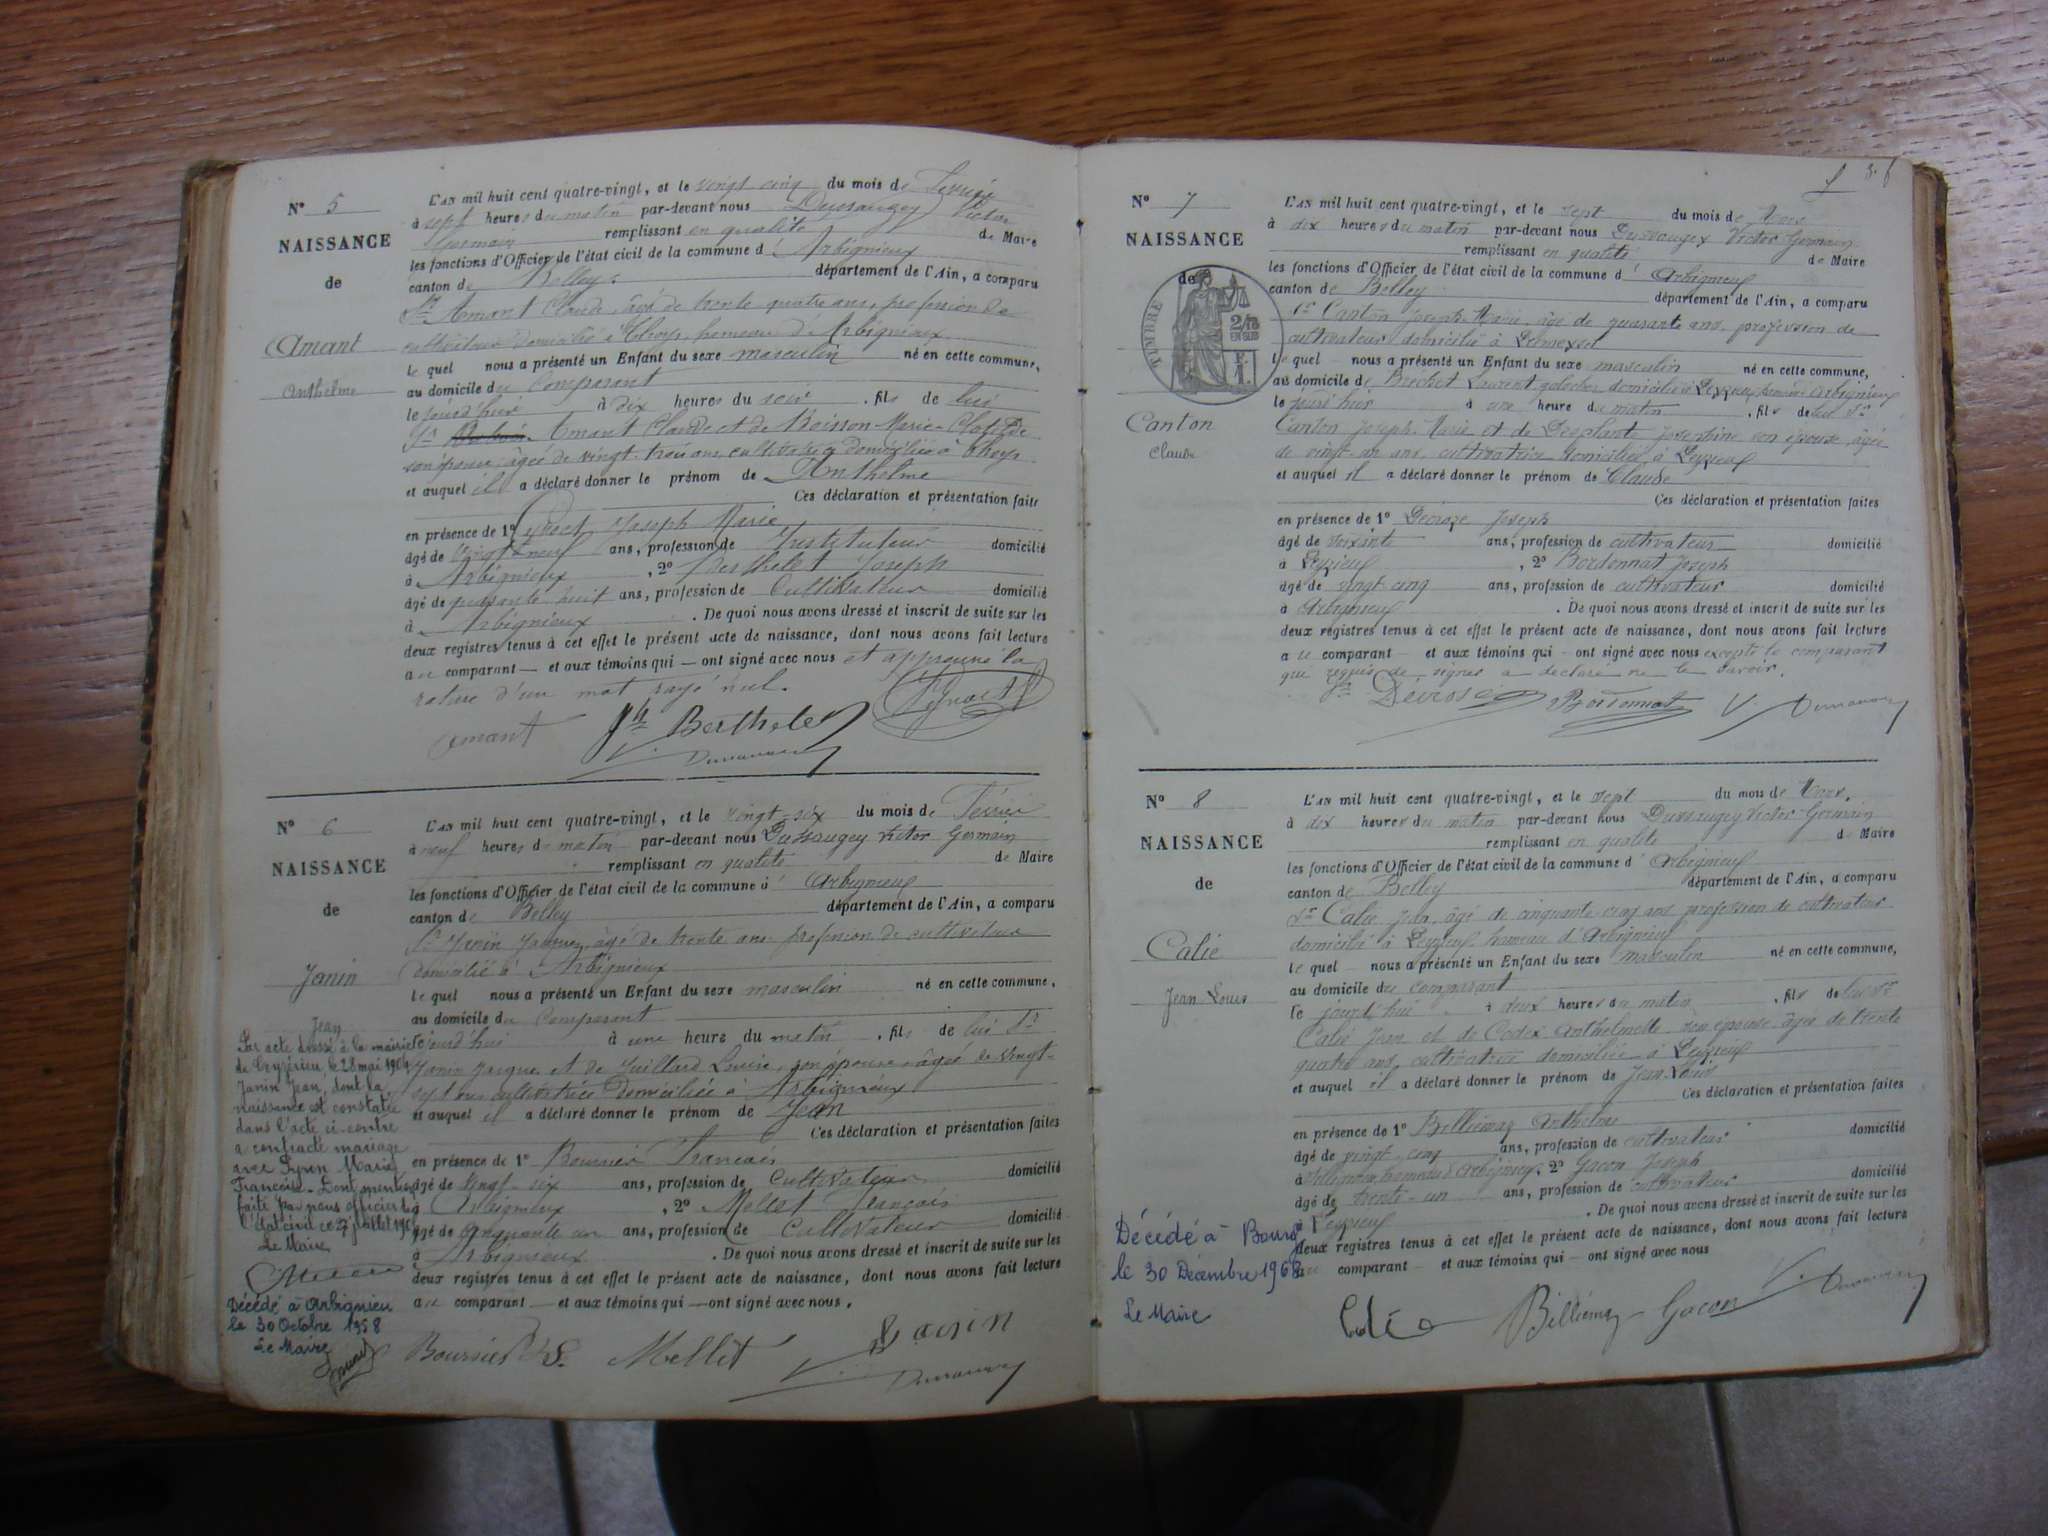 N° 5
NAISSANCE
de
Amant
Anthelme
L'an mil huit cent quatre-vingt, et le vingt cinq du mois de Février
à sept heures du matin par-devant nous Dussaugey Victor
Germain remplissant en qualité de Maire
les fonctions d'Officier de l'état civil de la commune d'Arbignieux
canton de Belley. département de l'Ain, a comparu
Sr Amant Claude, âgé de trente quatre ans, profession de
cultivateur domicilié à Thoys hameau d'Arbignieux
le quel nous a présenté un Enfant du sexe masculin né en cette commune,
au domicile du Comparant
le jourd'hui à dix heures du soir . fils de lui
Sr Amant Claude et de Boisson Marie Clotilde
son épouse, âgée de vingt trois ans, cultivatrice domiciliée à Thoys
et auquel il a déclaré donner le prénom de Anthelme
Ces déclaration et présentation faite
en présence de 1° Joseph Marie
âgé de vingt neuf ans, profession de Instituteur domicilié
à Arbignieux , 2° Berthelet Joseph
âgé de quarante huit ans, profession de Cultivateur domicilié
à Arbignieux . De quoi nous avons dressé et inscrit de suite sur les
deux registres tenus à cet effet le présent acte de naissance, dont nous avons fait lecture
au comparant — et aux témoins qui — ont signé avec nous et approuvé la
rature d'un mot rayé nul.
Amant Jh Berthelet
V. Dussaugey
N° 6
NAISSANCE
de
Janin
Jean
L'an mil huit cent quatre-vingt, et le vingt-six du mois de Février
à neuf heures du matin par-devant nous Dussaugey Victor Germain
remplissant en qualité de Maire
les fonctions d'Officier de l'état civil de la commune d'Arbignieux
canton de Belley département de l'Ain, a comparu
Sr Janin Jacques, âgé de trente ans profession de cultivateur
domicilié à Arbignieux
le quel nous a présenté un Enfant du sexe masculin né en cette commune,
au domicile du Comparant
le jourd'hui à une heure du matin . fils de lui Sr
Janin Jacques et de Juillard Louise, son épouse, âgée de vingt-
sept ans cultivatrice domiciliée à Arbignieux
et auquel il a déclaré donner le prénom de Jean
Ces déclaration et présentation faites
en présence de 1° Boursier Francois
âgé de vingt-six ans, profession de Cultivateur domicilié
à Arbignieux , 2° Mellet François
âgé de cinquante un ans, profession de Cultivateur domicilié
à Arbignieux . De quoi nous avons dressé et inscrit de suite sur les
deux registres tenus à cet effet le présent acte de naissance, dont nous avons fait lecture
au comparant — et aux témoins qui — ont signé avec nous.
Boursier Mellet Janin
V. Dussaugey
Par acte dressé à la mairie
de Ceyzérieu, le 28 mai 1904
Janin Jean, dont la
naissance est constatée
dans l'acte ci-contre
a contracté mariage
avec Marie
Françoise. Dont mention
faite par nous officier de
l'état civil ce 27 juillet
Le Maire
Décédé à Arbignieu
le 30 Octobre 1958
Le Maire
N° 7
NAISSANCE
de
TIMBRE
2/10
EN SUS
Canton
Claude
L'an mil huit cent quatre-vingt, et le sept du mois de Mars
à dix heures du matin par-devant nous Dussaugey Victor Germain
remplissant en qualité de Maire
les fonctions d'Officier de l'état civil de la commune d'Arbignieux
canton de Belley département de l'Ain, a comparu
Sr Canton Joseph-Marie, âgé de quarante ans, profession de
cultivateur domicilié à
le quel nous a présenté un Enfant du sexe masculin né en cette commune,
au domicile de Brechet Laurent, galocher domicilié à Leyzieux hameau d'Arbignieux
le jourd'hui à une heure du matin . fils de lui Sr
Canton Joseph-Marie et de Desplante Josephine son épouse, âgée
de vingt-un ans, cultivatrice domiciliée à Leyzieux
et auquel il a déclaré donner le prénom de Claude
Ces déclaration et présentation faites
en présence de 1° Joseph
âgé de soixante ans, profession de cultivateur domicilié
à Leyzieux , 2° Bordonnat Joseph
âgé de vingt cinq ans, profession de cultivateur domicilié
à Arbignieux . De quoi nous avons dressé et inscrit de suite sur les
deux registres tenus à cet effet le présent acte de naissance, dont nous avons fait lecture
au comparant — et aux témoins qui — ont signé avec nous excepté le comparant
qui requis de signer a déclaré ne le savoir.
Bordonnat V. Dussaugey
N° 8
NAISSANCE
de
Calie
Jean Louis
L'an mil huit cent quatre-vingt, et le sept du mois de Mars.
à dix heures du matin par-devant nous Dussaugey Victor Germain
remplissant en qualité de Maire
les fonctions d'Officier de l'état civil de la commune d'Arbignieux
canton de Belley département de l'Ain, a comparu
Sr Calie Jean, âgé de cinquante cinq ans profession de cultivateur
domicilié à Leyzieux hameau d'Arbignieux
le quel nous a présenté un Enfant du sexe masculin né en cette commune,
au domicile du comparant
le jourd'hui à deux heures du matin . fils de lui Sr
Calie Jean et de Codex Anthelmette son épouse âgée de trente
quatre ans, cultivatrice domiciliée à Leyzieux
et auquel il a déclaré donner le prénom de Jean-Louis
Ces déclaration et présentation faites
en présence de 1° Billiemaz Anthelme domicilié
âgé de vingt cinq ans, profession de cultivateur
à hameau d'Arbignieux, 2° Gacon Joseph
âgé de trente-un ans, profession de cultivateur domicilié
à Leyzieux . De quoi nous avons dressé et inscrit de suite sur les
deux registres tenus à cet effet le présent acte de naissance, dont nous avons fait lecture
au comparant — et aux témoins qui — ont signé avec nous
Billiemaz Gacon V. Dussaugey
Décédé à Bourg
le 30 Décembre 1968
Le Maire